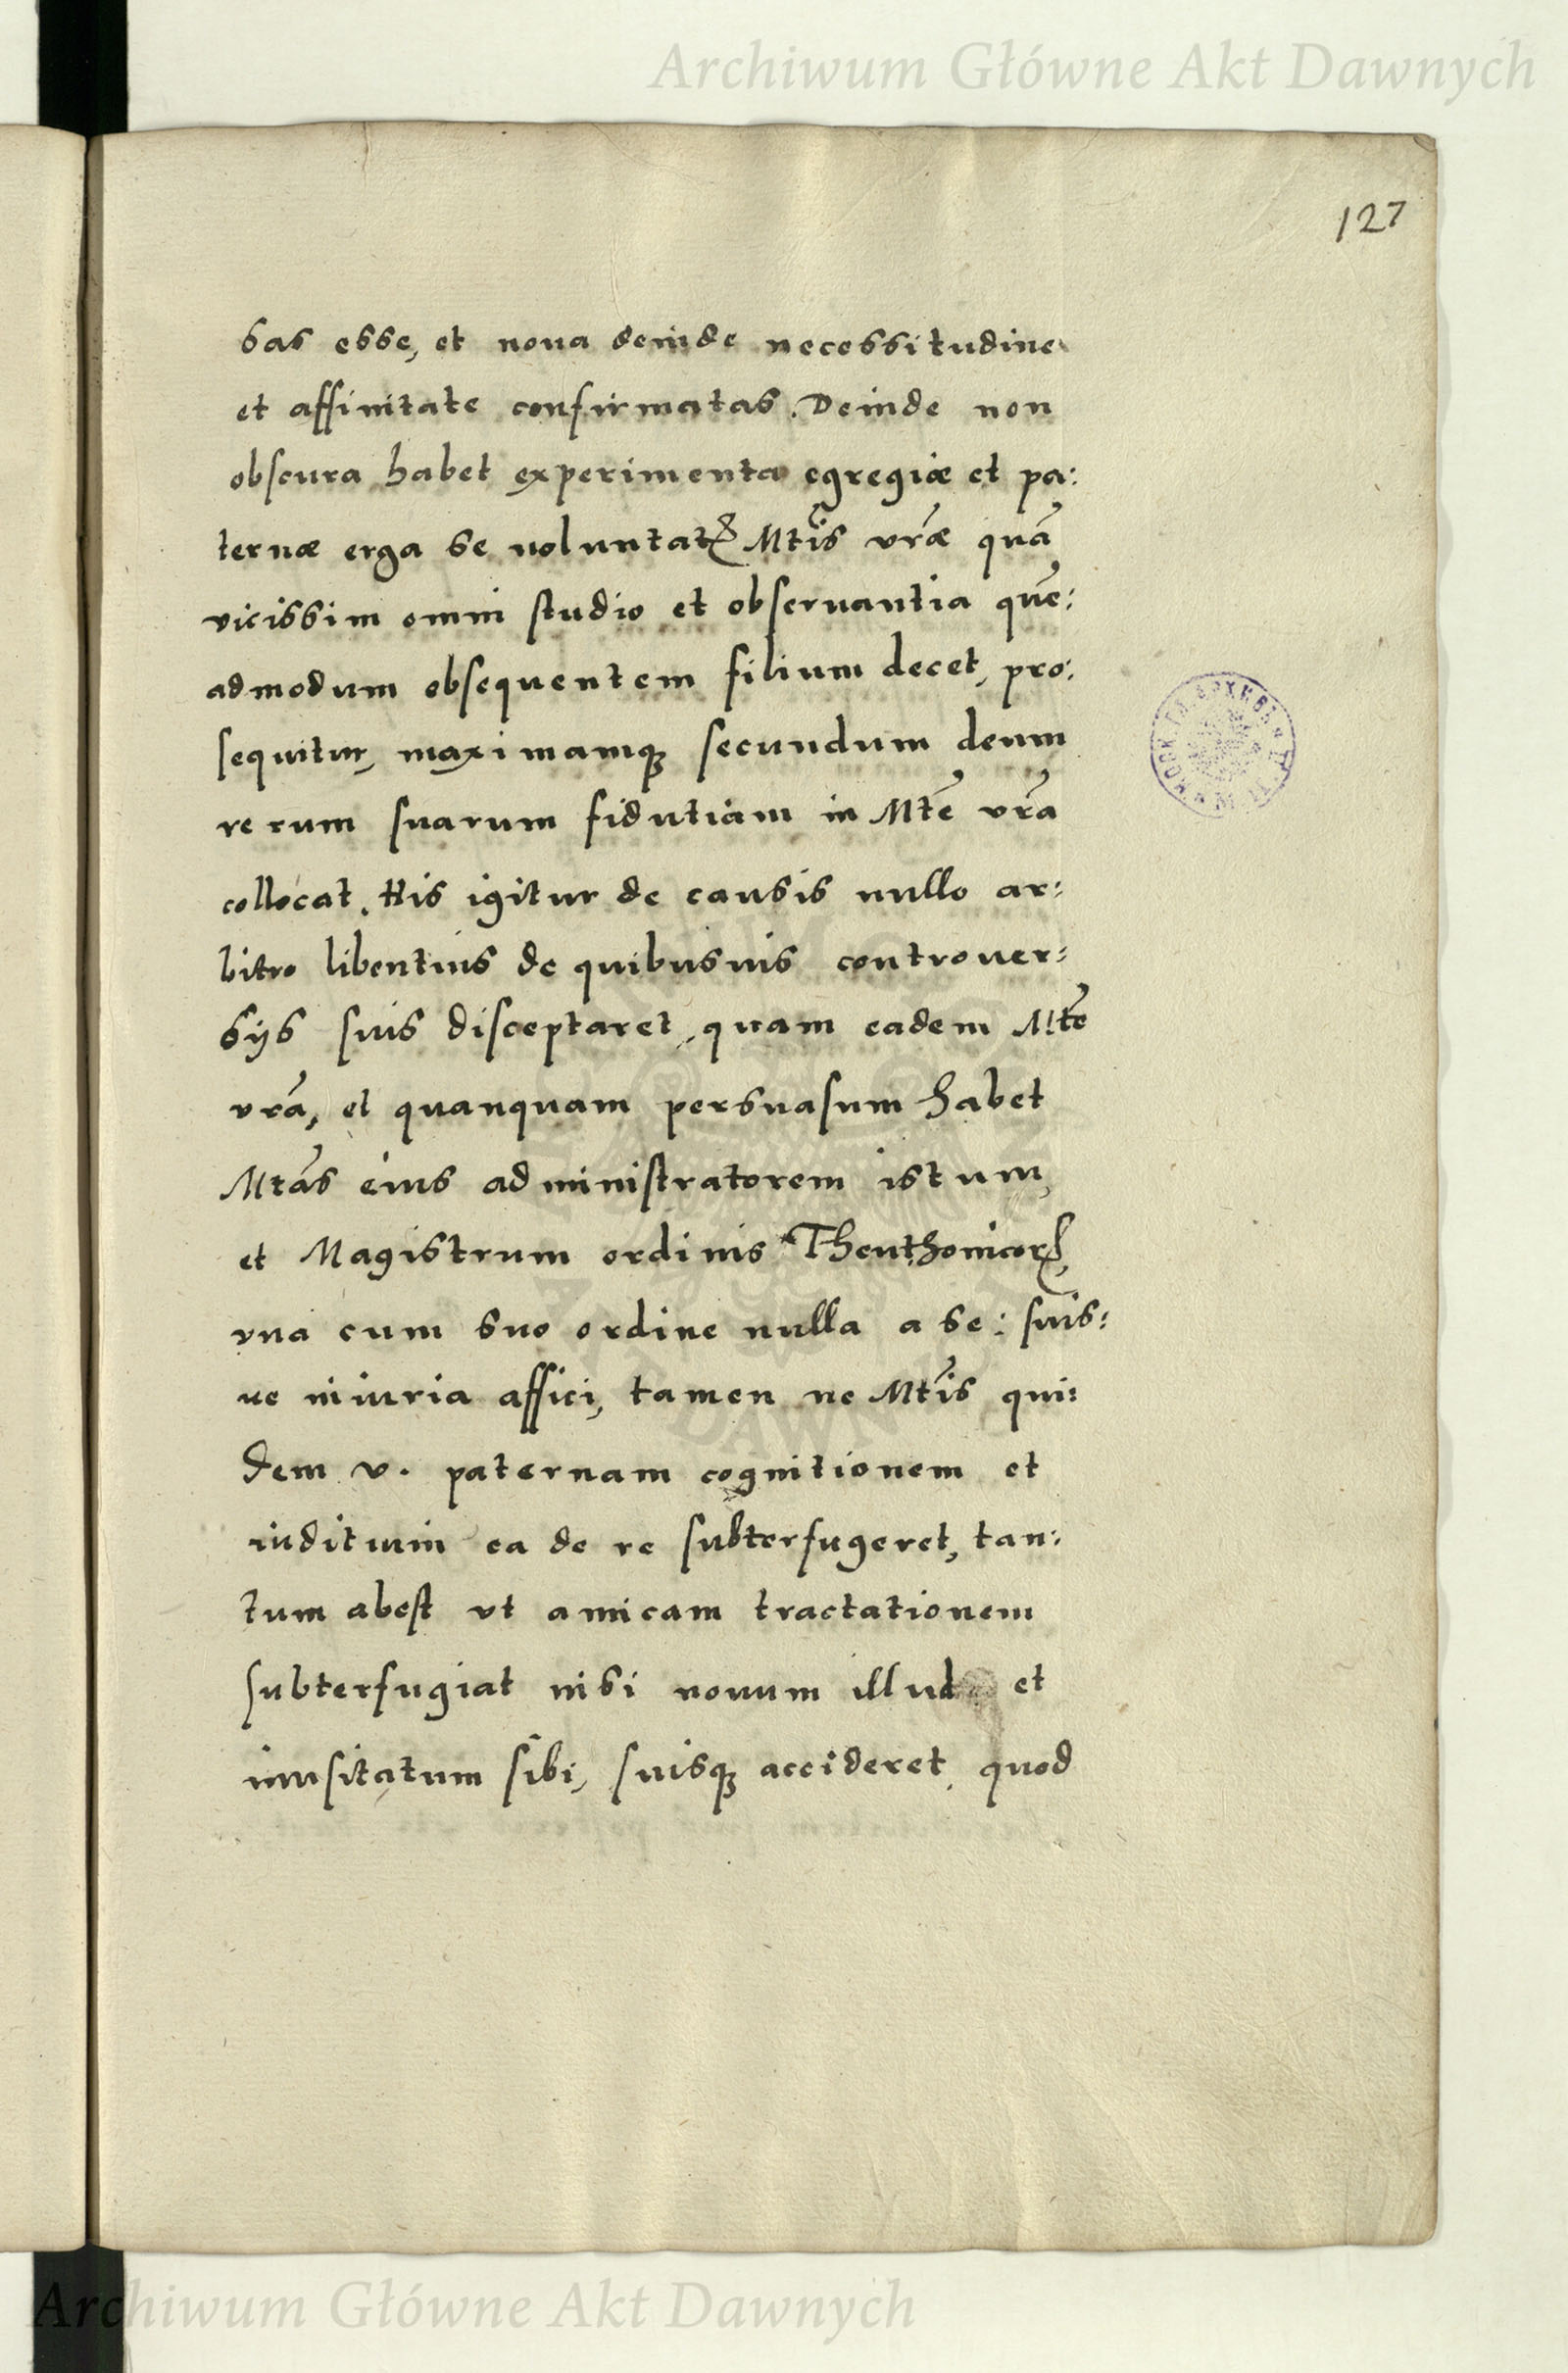 Archiwum Główne Akt Dawnych
127
sas esse, et noua deinde necessitudine
et affinitate confirmatas. Deinde non
obscura habet experimenta egregiæ et pa:
ternæ erga se uoluntatꝭ Mtis vr̄æ quā
vicissim omni studio et obseruantia quē:
admodum obsequentem filium decet, pro:
sequitur, maximamqꝫ secundum deum
rerum suarum fidutiam in Mtē vr̄a
collocat. His igitur de causis nullo ar:
bitro libentius de quibusuis controuer:
sijs suis disceptaret, quam eadem Mtē
vr̄a, et quanquam persuasum habet
Mtās eius administratorem istum,
et Magistrum ordinis Theuthonicorꝝ,
vna cum suo ordine nulla a se: suis:
ue iniuria affici, tamen ne Mtis qui:
dem v. paternam cognitionem et
iuditium ea de re subterfugeret, tan:
tum abest vt amicam tractationem
subterfugiat nisi nouum illud et
inusitatum sibi, suisqꝫ accideret, quod
Archiwum Główne Akt Dawnych